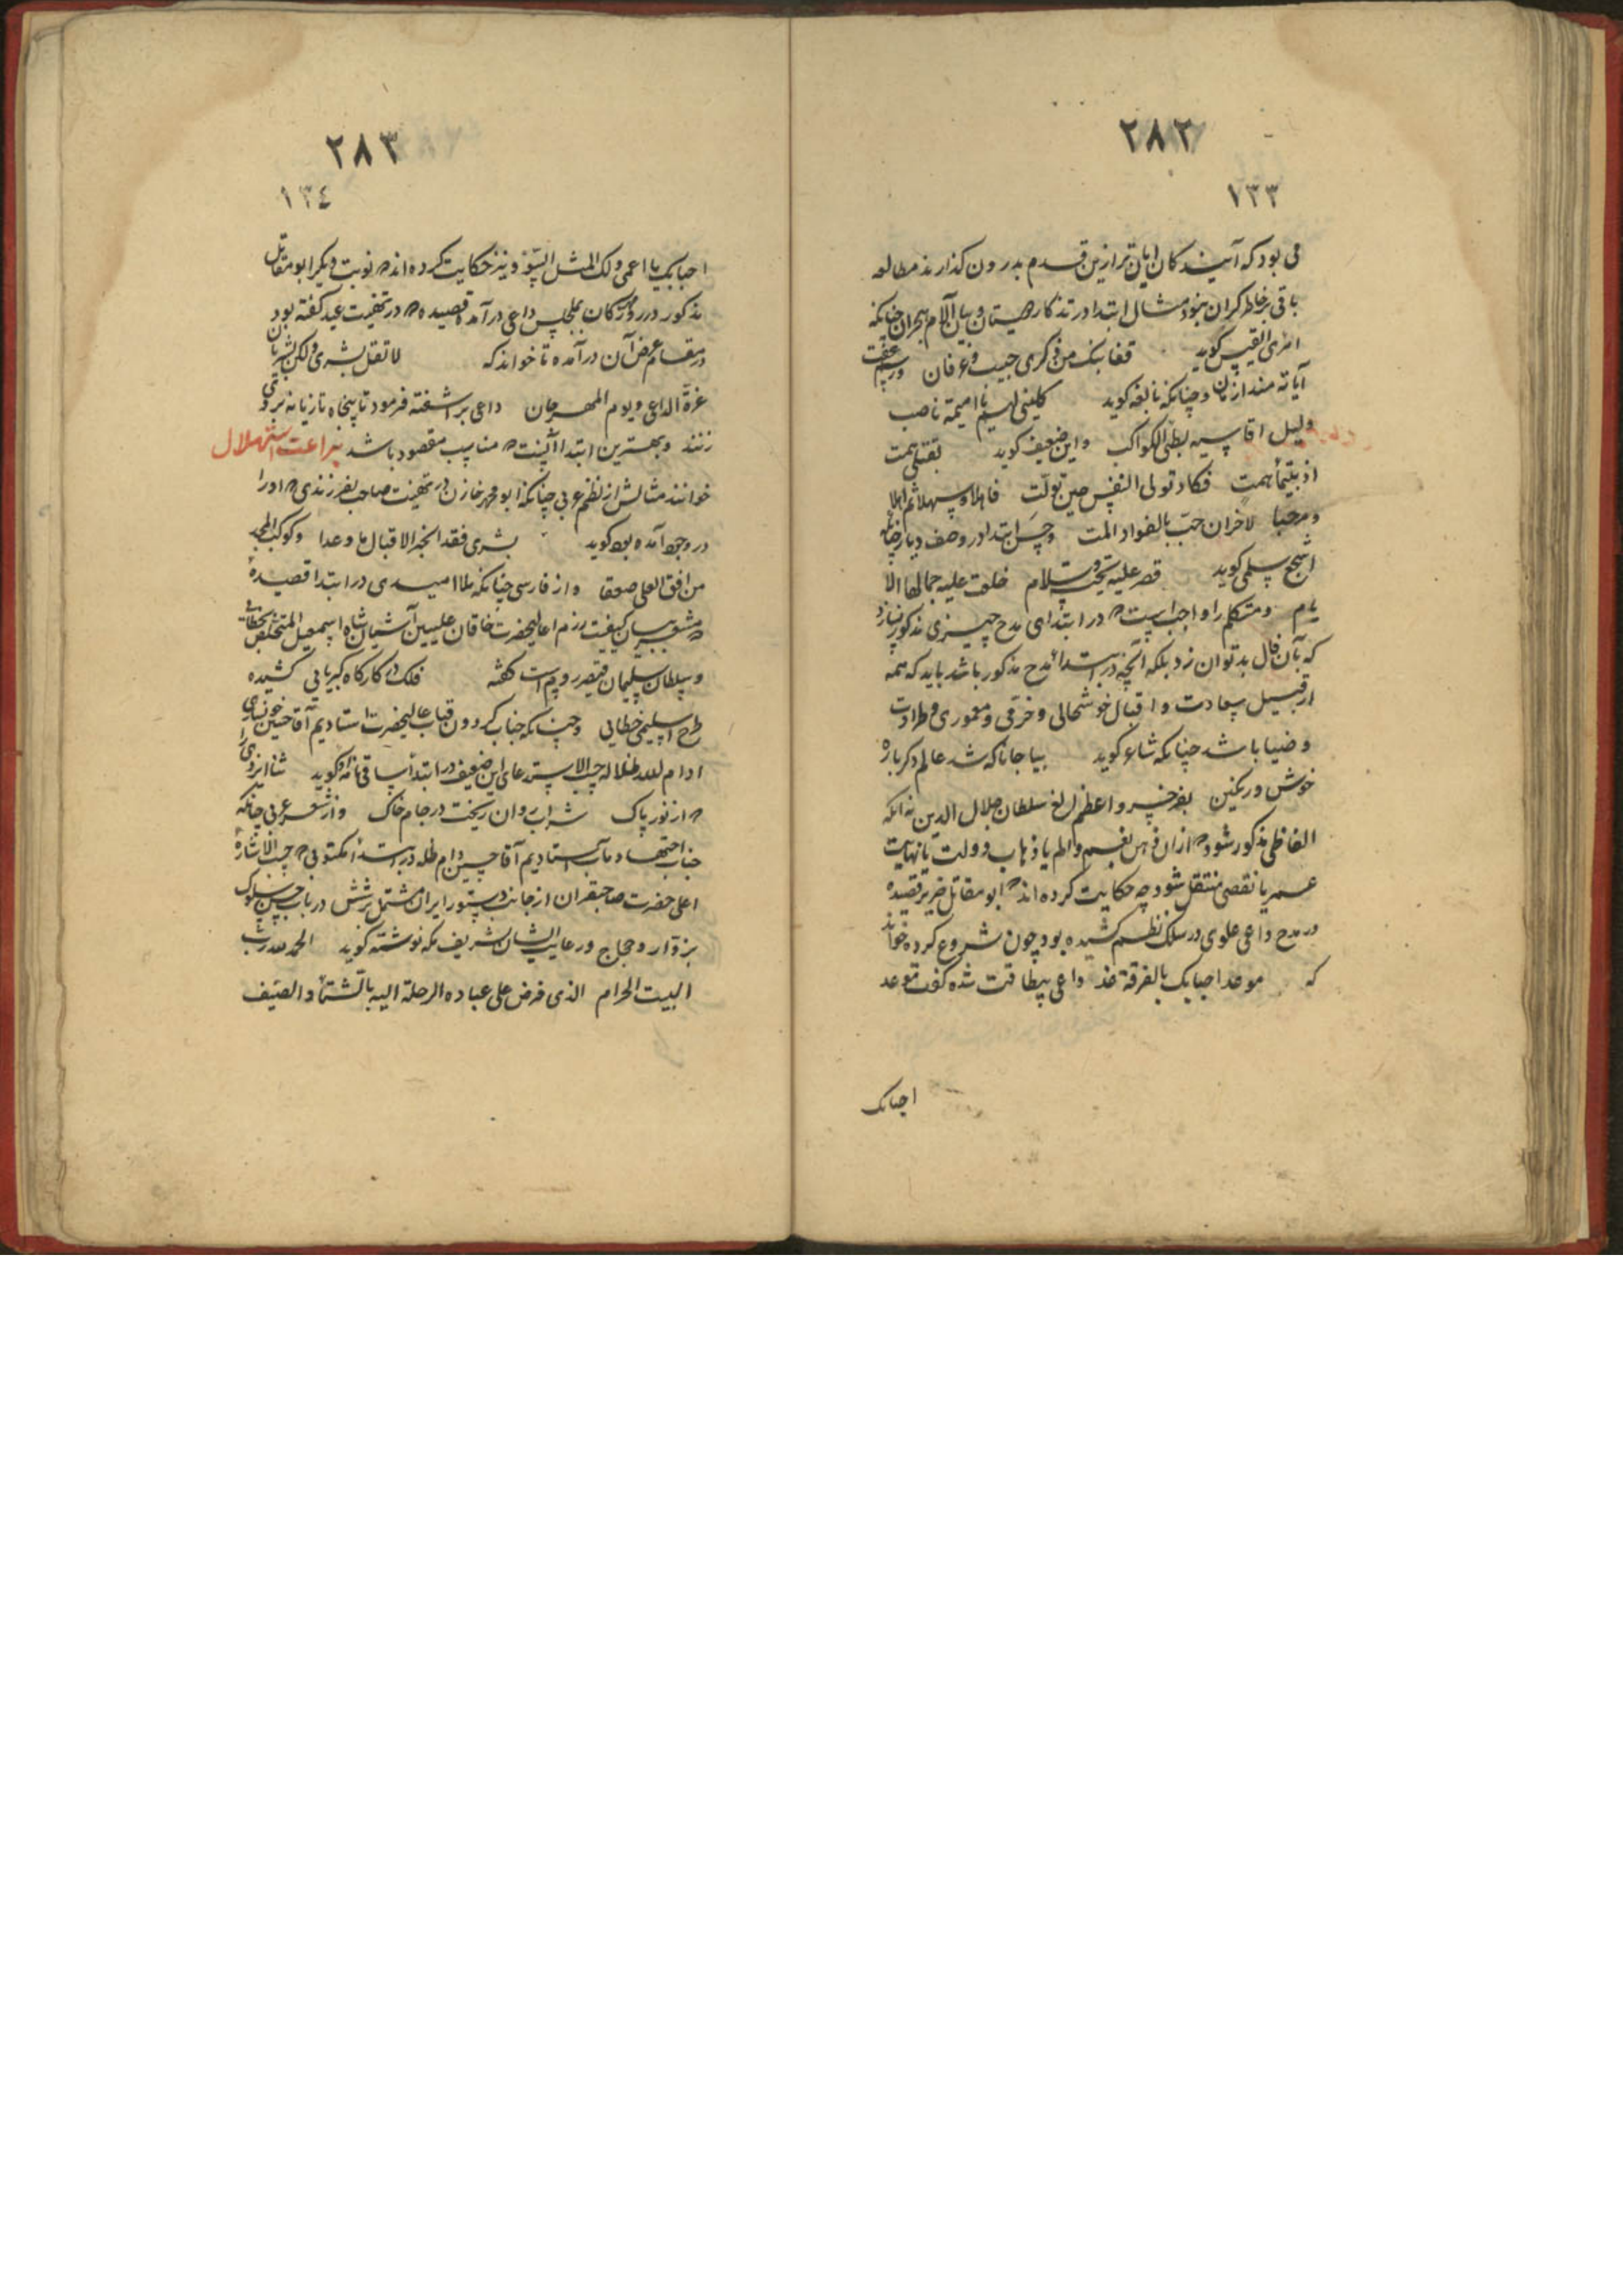 ٢٨٢
١٣٣
می بود که آیندکان ازین قدم بدرون کذارند مطالعه
باقی بر خاطر کران بنود مثال ابتدا در تذکار و بیان آلام هجران چنانکه
امرئ القیس کوید قفا نبک من ذکری حبیب و عرفان ورسم عفت
آیاته منذ ازمان و چنانکه نابغه کوید کلینی لهم یا امیمة ناصب
ولیل اقاسیه بطئ الکواکب و این ضعیف کوید همت
اذ همت فکادت تولی النفس حین تولت فاهلا و سهلا ثم اهلا
ومرحبا لاخران حبت بالفواد المت و حسن ابتدا در وصف دیار چنانکه
اشجع سلمی کوید قصر علیه تحیة وسلام خلعت علیه جمالها الا
یام و متکلم را واجبست که در ابتدای مدح چیزی مذکور نسازد
که بآن فال بد توان زد بلکه آنچه در ابتداء مدح مذکور باشد باید که همه
از قبیل سعادت و اقبال خوشحالی و خرمی و معموری و طراوت
و ضیا باشد چنانکه شاعر کوید بیا جانا که شد عالم دکرباره
خوش و رنکین بفر خسرو اعظم الغ سلطان جلال الدین نه آنکه
الفاظی مذکور شود که ازان ذهن بغم و الم یا ذهاب دولت یا نهایت
عمر یا نقصی منتقل شود چه حکایت کرده اند که ابو مقاتل ضریر قصیده
در مدح داعی علوی در سلک نظم کشیده بود چون شروع کرده خواند
که موعد احبابک بالفرقة غد داعی بیطاقت شده کفت موعد
احبابک
٢٨٣
١٣٤
احبابک یا اعمی ولک المثل السوء و نیز حکایت کرده اند که نوبت دیکر ابو مقاتل
مذکور در روز مهرکان بمجلس داعی درآمد و قصیده که در تهنیت عید کفته بود
در مقام عرض آن درآمده تا خواند که لا تقل بشری ولکن بشریان
غرة الداعی و یوم المهرجان داعی برآشفته فرمود تا پنجاه تازیانه بر وی
زنند و بهترین ابتدا آنست که مناسب مقصود باشد براعت استهلال
خوانند مثالش از نظم عربی چنانکه ابو محمد خازن در تهنیت صاحب بفرزندی که او را
در وجود آمده بود کوید بشری فقد انجز الاقبال ما وعدا وکوکب المجد
من افق العلی صعدا و از فارسی چنانکه ملا امیدی در ابتدا قصیدهٔ
که مشعر ببیان کیفیت رزم اعلیحضرت خاقان علیین آشیان شاه اسمعیل المتخلص بخطائی
و سلطان سلیمان قیصر روم است کفته فلک در کارکاه کبریایی کشیده
طرح اسلیمی خطایی و چنانکه جناب کردون قباب عالیحضرت استادیم آقا حسین خونساری
ادام الله ظلاله حسب الاستدعای این ضعیف در ابتداء ساقی نامه کوید ثنا ایزدی را
که از نور پاک شراب روان ریخت در جام خاک و از شعر عربی چنانکه
جناب اجتهاد مآب استادیم آقا حسین دام ظله در ابتداء مکتوبی که حسب الاشارهٔ
اعلی حضرت صاحبقران از جانب دستور ایران مشتمل بر سفارش در باب حسن سلوک
بزوار و حجاج و رعایت ایشان بشریف مکه نوشته کوید الحمد لله رب
البیت الحرام الذی فرض علی عباده الرحلة الیه بالشتاء و الصیف